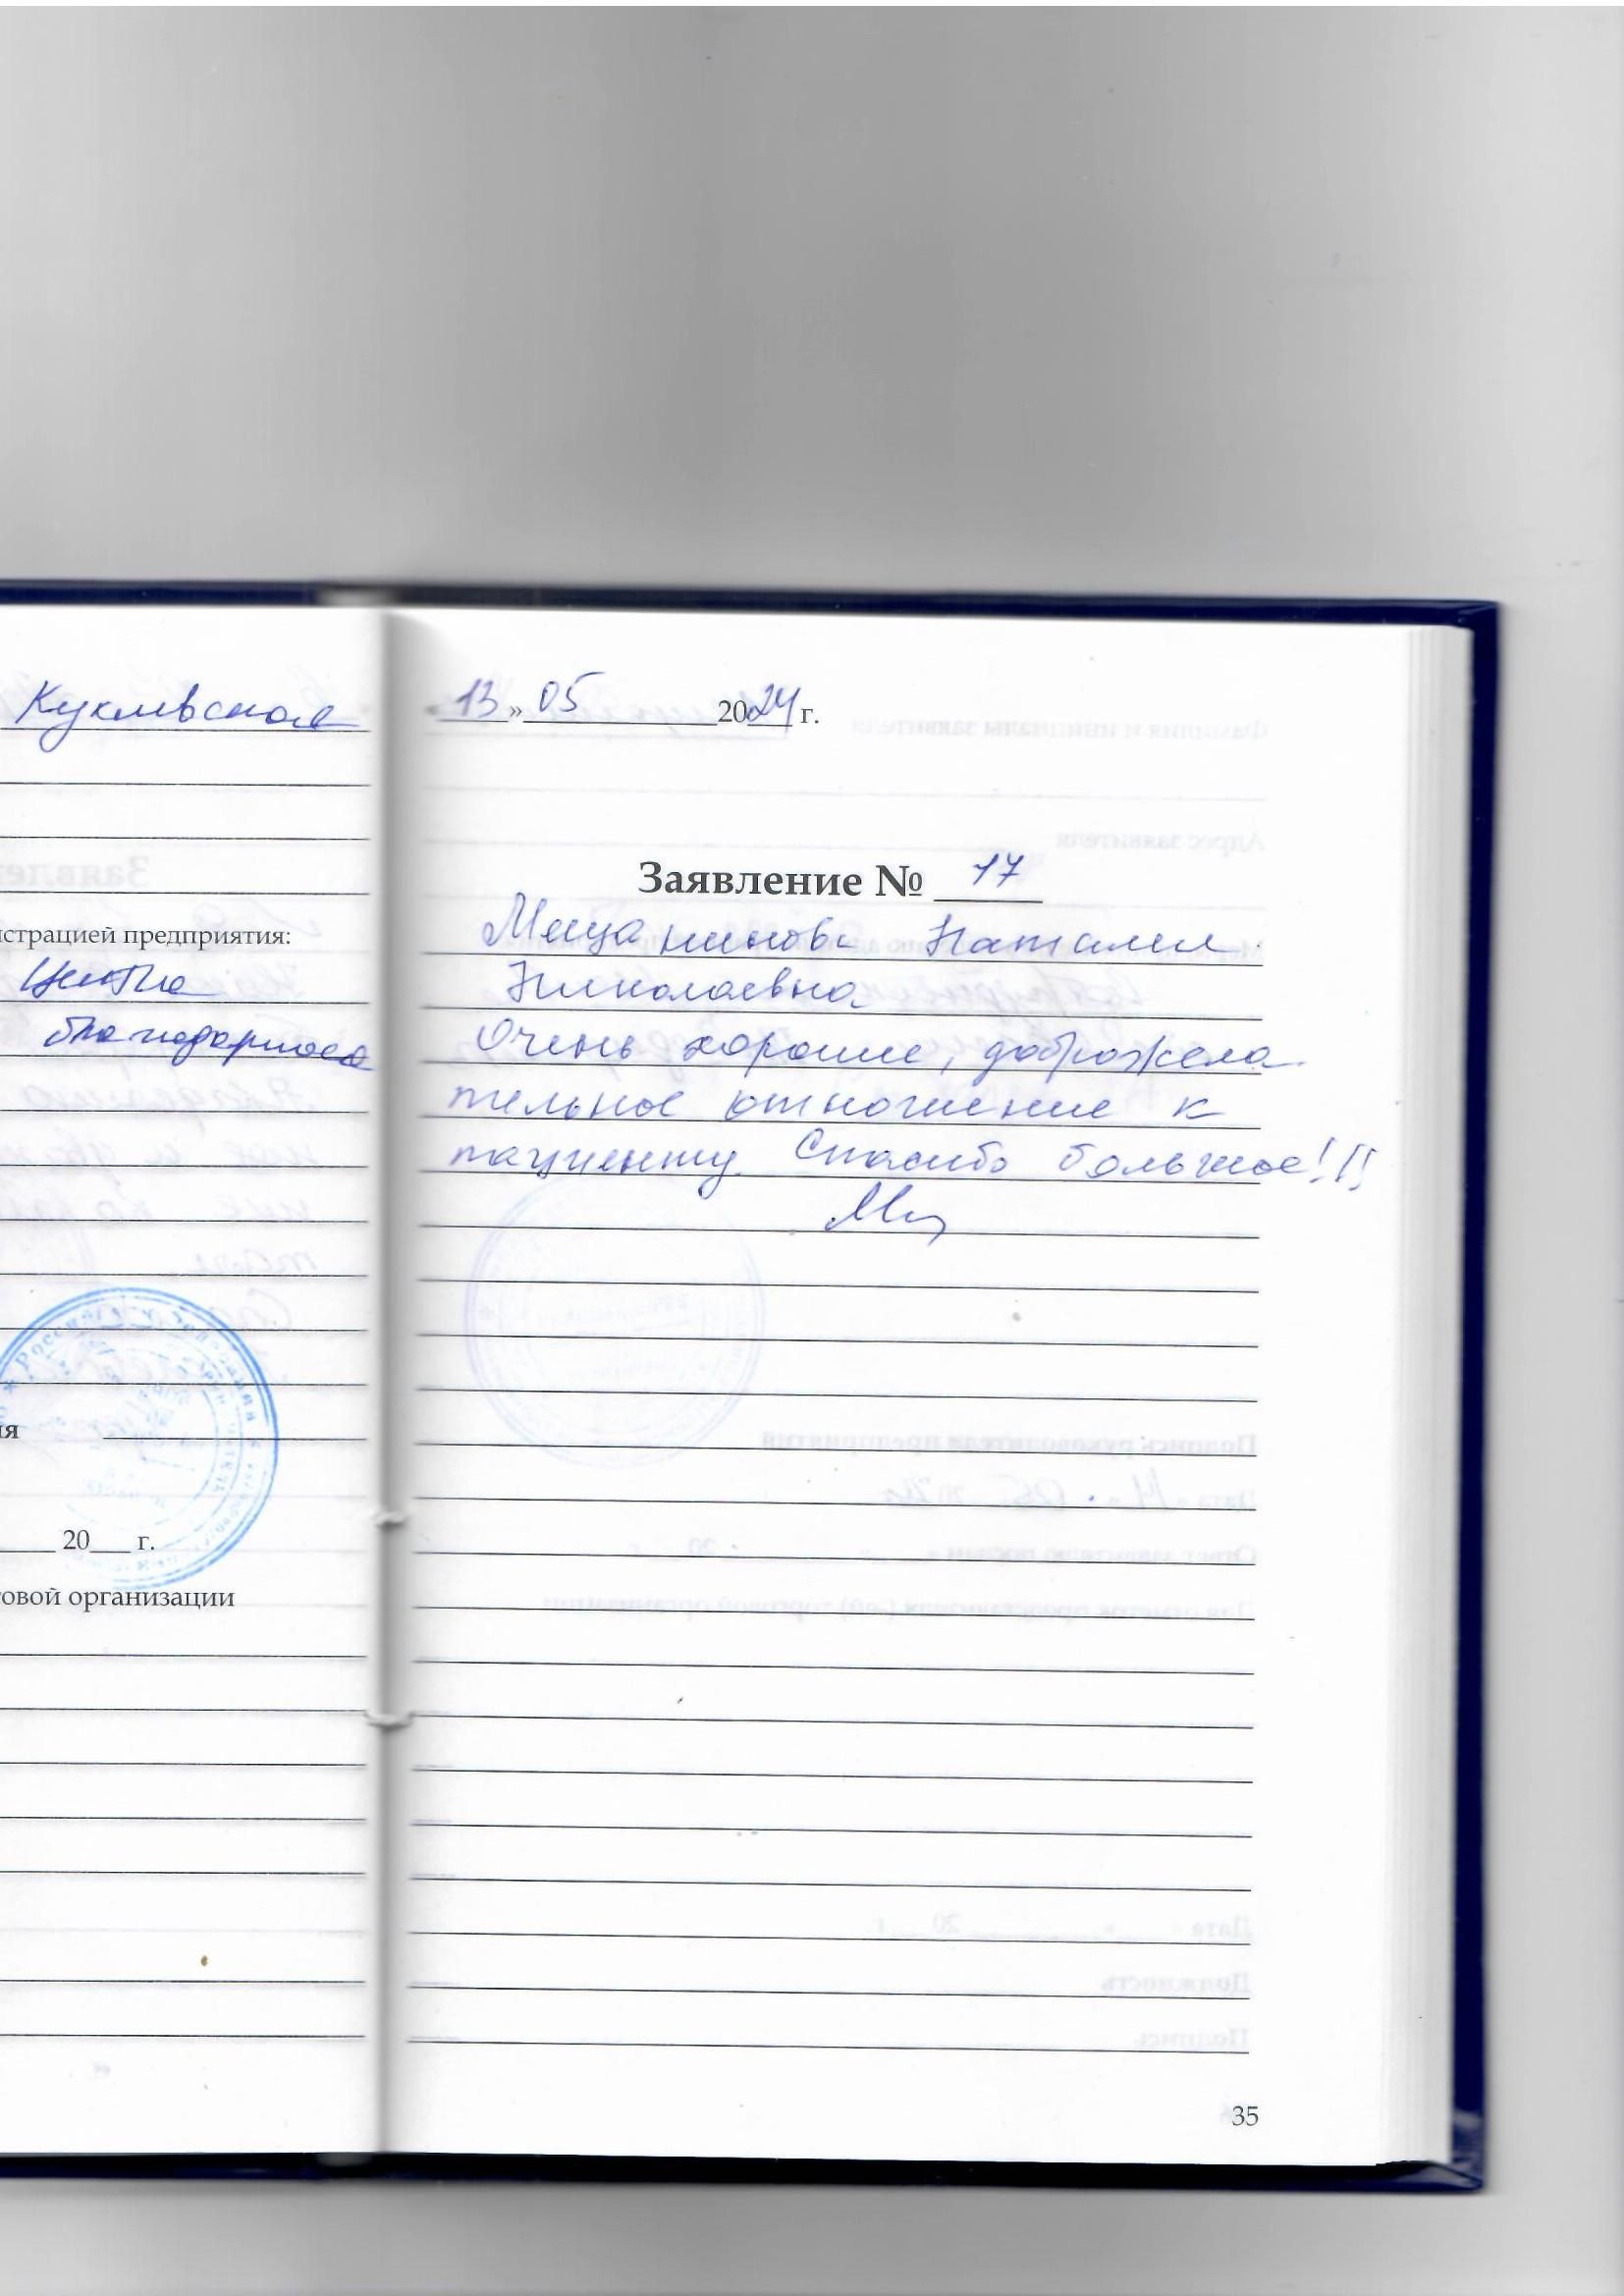 Куклевская
истрацией предприятия:
Центра
благодарност
ия
20 г.
говой организации
13 » 05 2024 г.
Заявление № 17
Мещанинова Наталия
Николаевна
Очень хорошее, доброжела
тельное отношение к
пациенту. Спасибо большое!!!
35